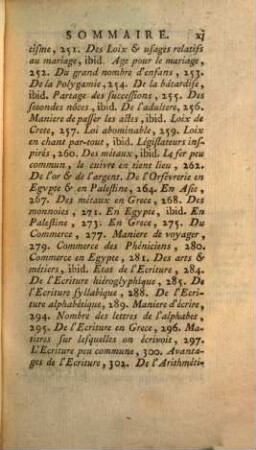 SOMMAIRE. xj
cisme, 251. Des Loix & usages relatifs
au mariage, ibid. Age pour le mariage,
252. Du grand nombre d'enfans, 253.
De la Polygamie, 254. De la bâtardise,
ibid. Partage des successions, 255. Des
secondes nôces, ibid. De l'adultere, 256.
Maniere de passer les actes, ibid. Loix de
Crete, 257. Loi abominable, 259. Loix
en chant par-tout, ibid. Législateurs ins-
pirés, 260. Des métaux, ibid. Le fer peu
commun, le cuivre en tient lieu, 262.
De l'or & de l'argent. De l'Orfévrerie en
Egypte & en Palestine, 264. En Asie,
267. Des métaux en Grece, 268. Des
monnoies, 271. En Egypte, ibid. En
Palestine, 273. En Grece, 275. Du
Commerce, 277. Maniere de voyager,
279. Commerce des Phéniciens, 280.
Commerce en Egypte, 281. Des arts &
métiers, ibid. Etat de l'Ecriture, 284.
De l'Ecriture hiéroglyphique, 285. De
l'Ecriture syllabique, 288. De l'Ecri-
ture alphabétique, 289. Maniere d'écrire,
294. Nombre des lettres de l'alphabet,
295. De l'Ecriture en Grece, 296. Ma-
tieres sur lesquelles on écrivoit, 297.
L'Ecriture peu commune, 300. Avanta-
ges de l'Ecriture, 302. De l'Arithméti-